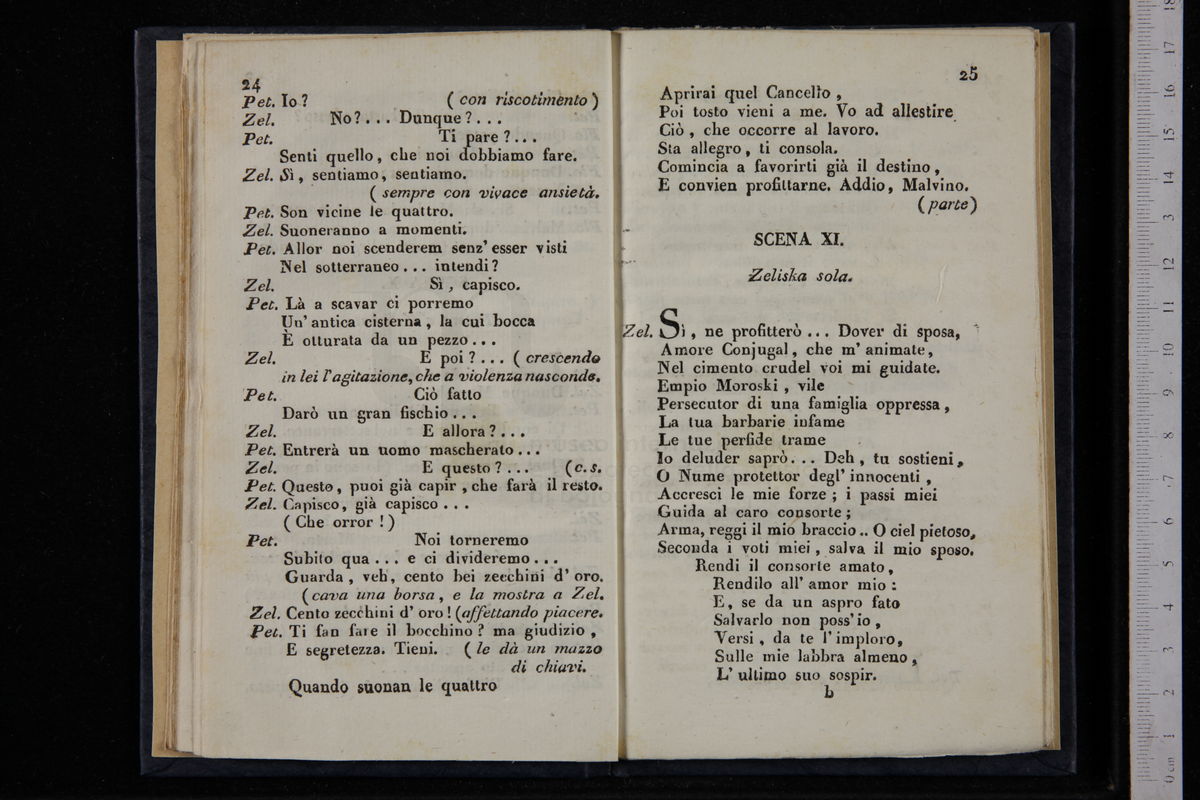 24
Pet. Io? ( con riscotimento )
Zel. No?... Dunque?...
Pet. Ti pare?...
Senti quello, che noi dobbiamo fare.
Zel. Sì, sentiamo, sentiamo.
( sempre con vivace ansietà.
Pet. Son vicine le quattro.
Zel. Suoneranno a momenti.
Pet. Allor noi scenderem senz' esser visti
Nel sotterraneo... intendi?
Zel. Sì, capisco.
Pet. Là a scavar ci porremo
Un' antica cisterna, la cui bocca
È otturata da un pezzo...
Zel. E poi?... ( crescendo
in lei l'agitazione, che a violenza nasconde.
Pet. Ciò fatto
Darò un gran fischio...
Zel. E allora?...
Pet. Entrerà un uomo mascherato...
Zel. E questo?... (c. s.
Pet. Questo, puoi già capir, che farà il resto.
Zel. Capisco, già capisco...
( Che orror! )
Pet. Noi torneremo
Subito qua... e ci divideremo...
Guarda, veh, cento bei zecchini d' oro.
( cava una borsa, e la mostra a Zel.
Zel. Cento zecchini d' oro! (affettando piacere.
Pet. Ti fan fare il bocchino? ma giudizio,
E segretezza. Tieni. ( le dà un mazzo
di chiavi.
Quando suonan le quattro
25
Aprirai quel Cancello,
Poi tosto vieni a me. Vo ad allestire
Ciò, che occorre al lavoro.
Sta allegro, ti consola.
Comincia a favorirti già il destino,
E convien profittarne. Addio, Malvino.
(parte)
SCENA XI.
Zeliska sola.
Zel. Sì, ne profitterò... Dover di sposa,
Amore Conjugal, che m' animate,
Nel cimento crudel voi mi guidate.
Empio Moroski, vile
Persecutor di una famiglia oppressa,
La tua barbarie infame
Le tue perfide trame
Io deluder saprò... Deh, tu sostieni,
O Nume protettor degl' innocenti,
Accresci le mie forze; i passi miei
Guida al caro consorte;
Arma, reggi il mio braccio.. O ciel pietoso,
Seconda i voti miei, salva il mio sposo.
Rendi il consorte amato,
Rendilo all' amor mio:
E, se da un aspro fato
Salvarlo non poss' io,
Versi, da te l' imploro,
Sulle mie labbra almeno,
L' ultimo suo sospir.
b
0 cm 1 2 3 4 5 6 7 8 9 10 11 12 13 14 15 16 17 18